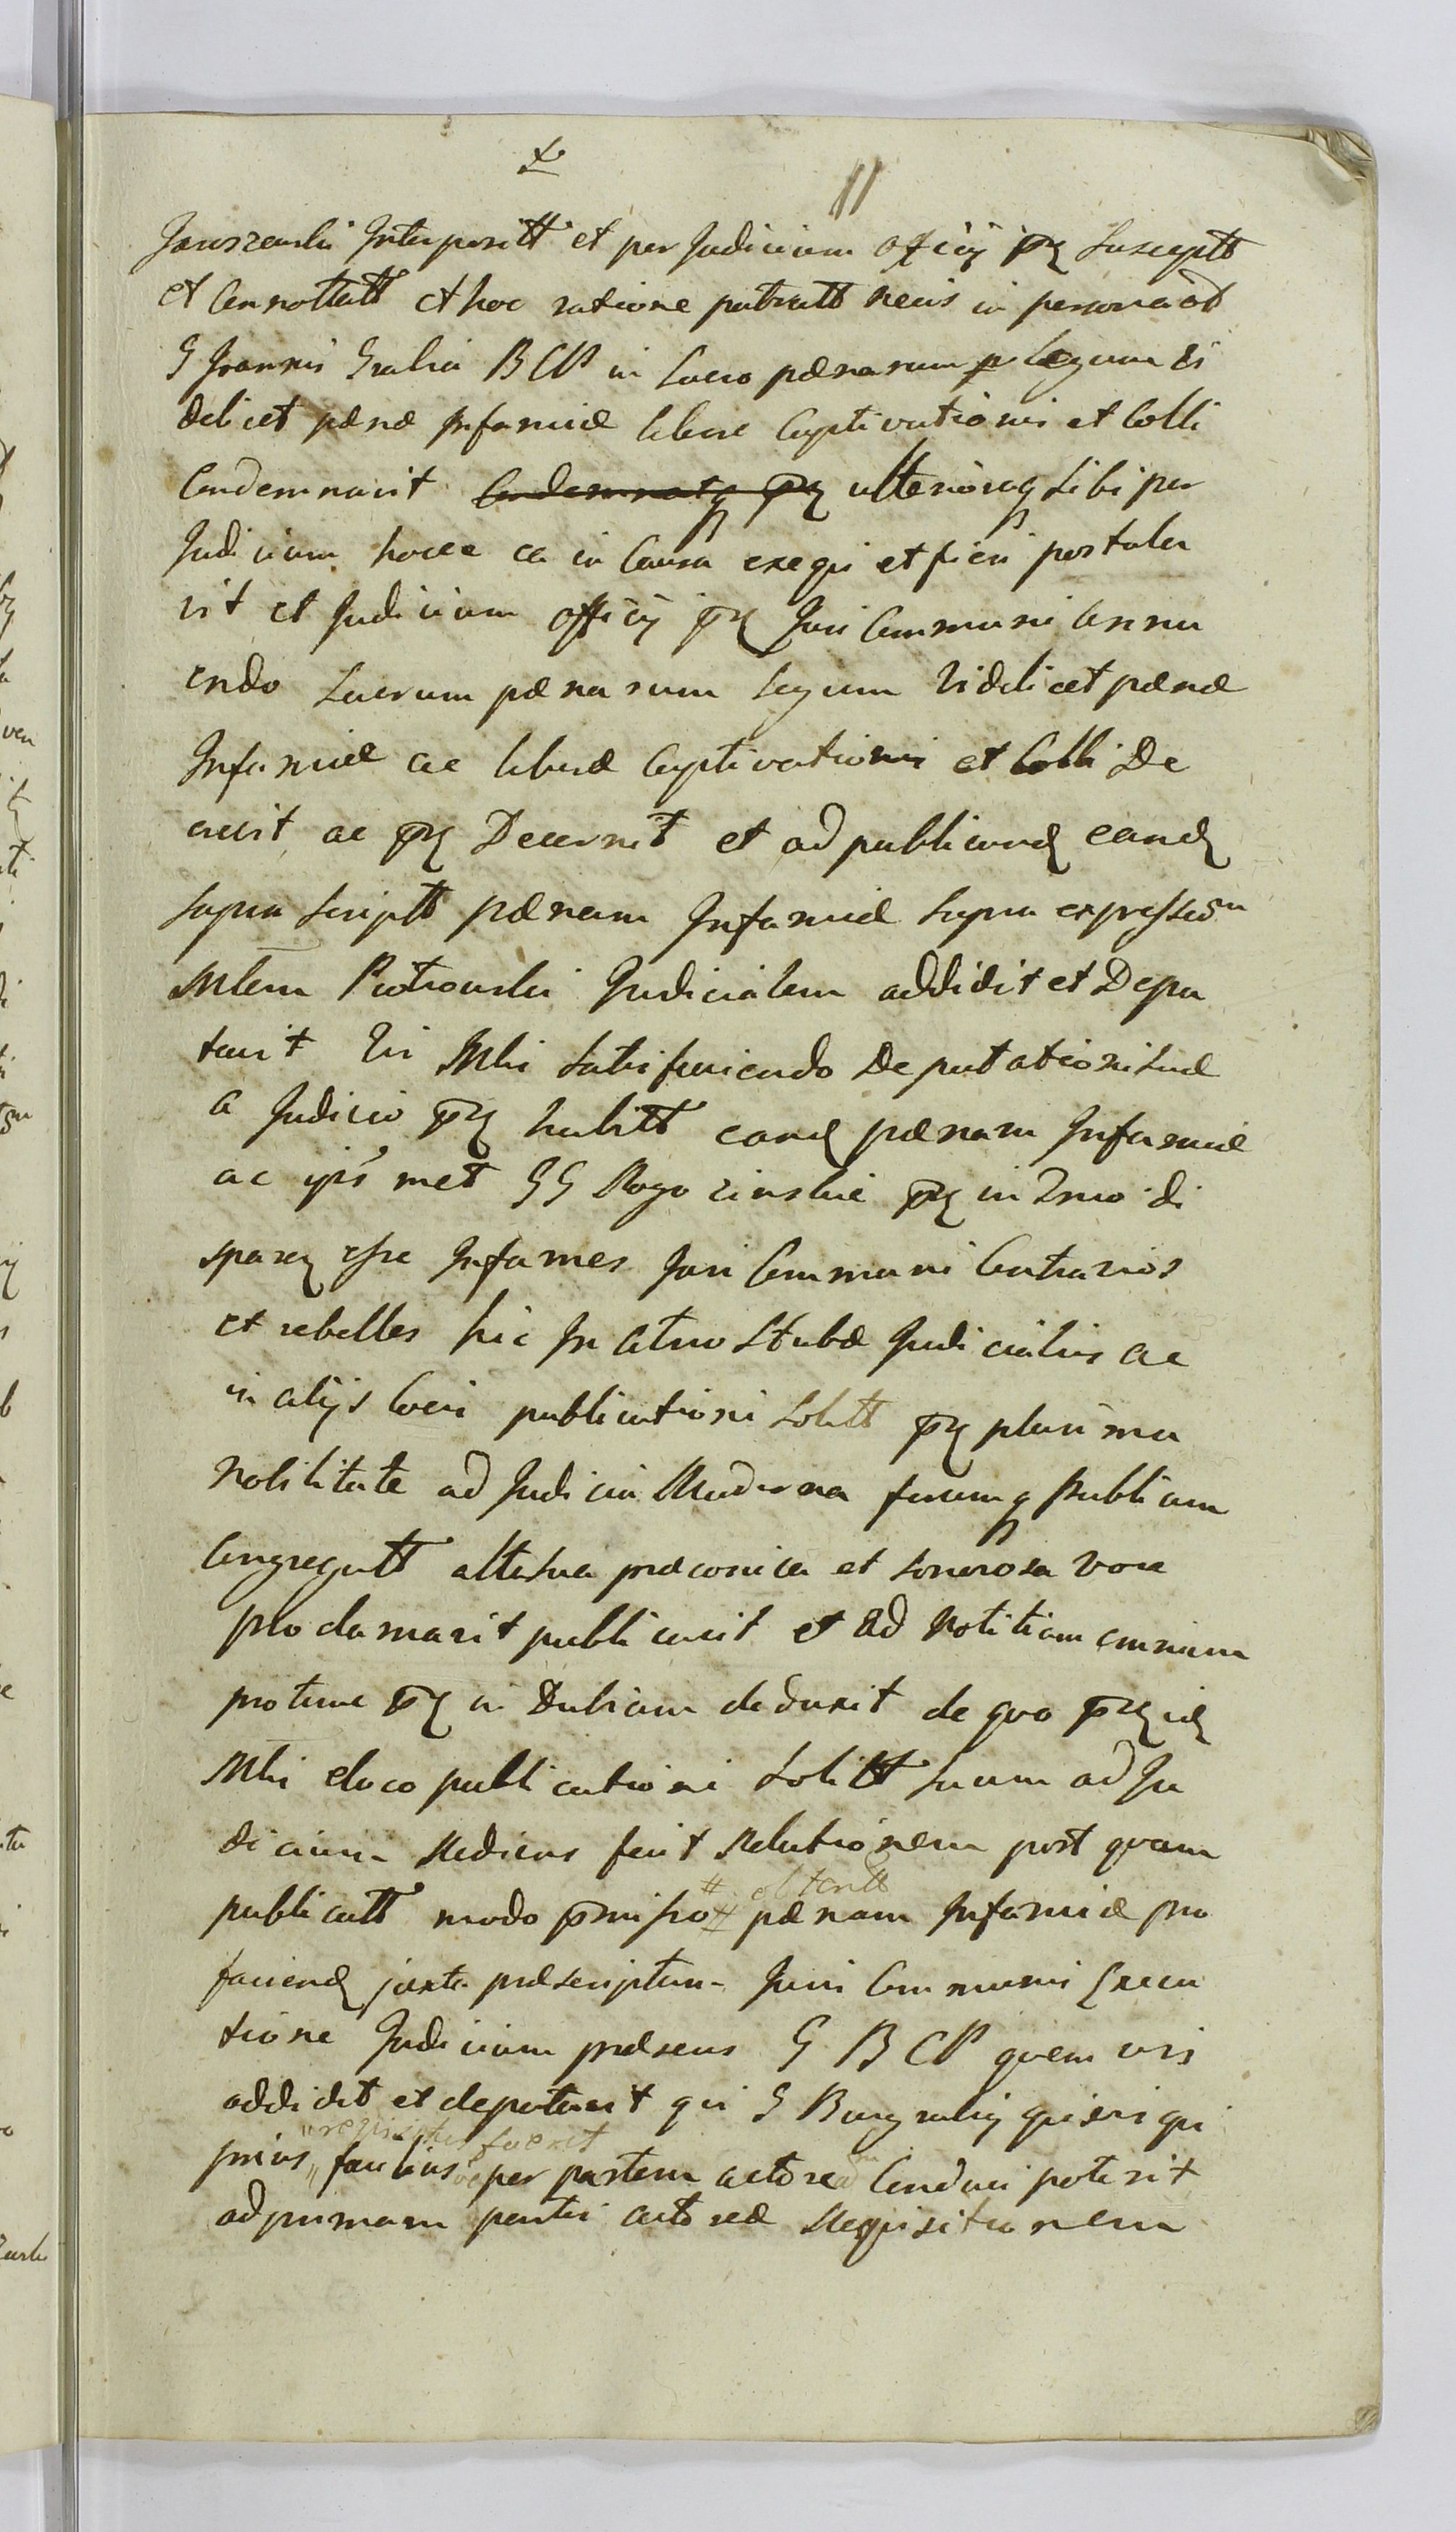 11
Jaruszewski Interpositt et per Judicium Officij p̄ns Susceptt
et Connottatt et hoc ratione patratt necis in persona od
G Joannis Gralia BCP in Lucro pænarum Legum Vi
delicet pænæ Infamiæ liberæ Captivationis et Colli
Condemnavit Condemnatq p̄ns ulteriusq Sibi per
Judicium hocce ca in Causa exequi et fieri postula
vit et Judicium Officij p̄ns Juri Communi Annu
endo Lucrum pænarum Legum Videlicet pænæ
Infamiæ ac liberæ Captivationis et Colli De
crevit ac p̄ns Decernit et ad publicand eand
supra scriptt pænam Infamiæ supra expressum
Mlem Piotrowski Judicialem addidit et Depu
tavit Vi Mlis Satisfaciendo Deputationi Suæ
a Judicio p̄ns habitt eand pænam Infamiæ
ac ips met GG Rogozinskie p̄ns in Imo di
sparq esse Infames Juri Communi Contrarios
et rebelles hic In Atrio Stubæ Judicialis ac
in alijs locis publicationi Solitt p̄ns plurima
Nobilitate ad Judicia Moderna forumq Publicum
Congregatt alta sua præconica et sonorosa voce
proclamavit publicavit et ad Notitiam omnium
protunc p̄ns in Dubium deduxit de quo p̄ns id
Mlis eloco publicationi Solitt suam ad Ju
dicium Rediens fecit Relationem post quam
publicatt modo p̄misso # pænam Infamiæ pro
# obtentt
faciend juxta præscriptum Juris Communis Execu
tione Judicium præsens G BCP quem vis
addidit et deputavit qui G Burgrabij quisvis qui
" requisitus fuerit
prius " facilius ve per partem actorea Conduci poterit
ad primam partis actoreæ Requisitionem